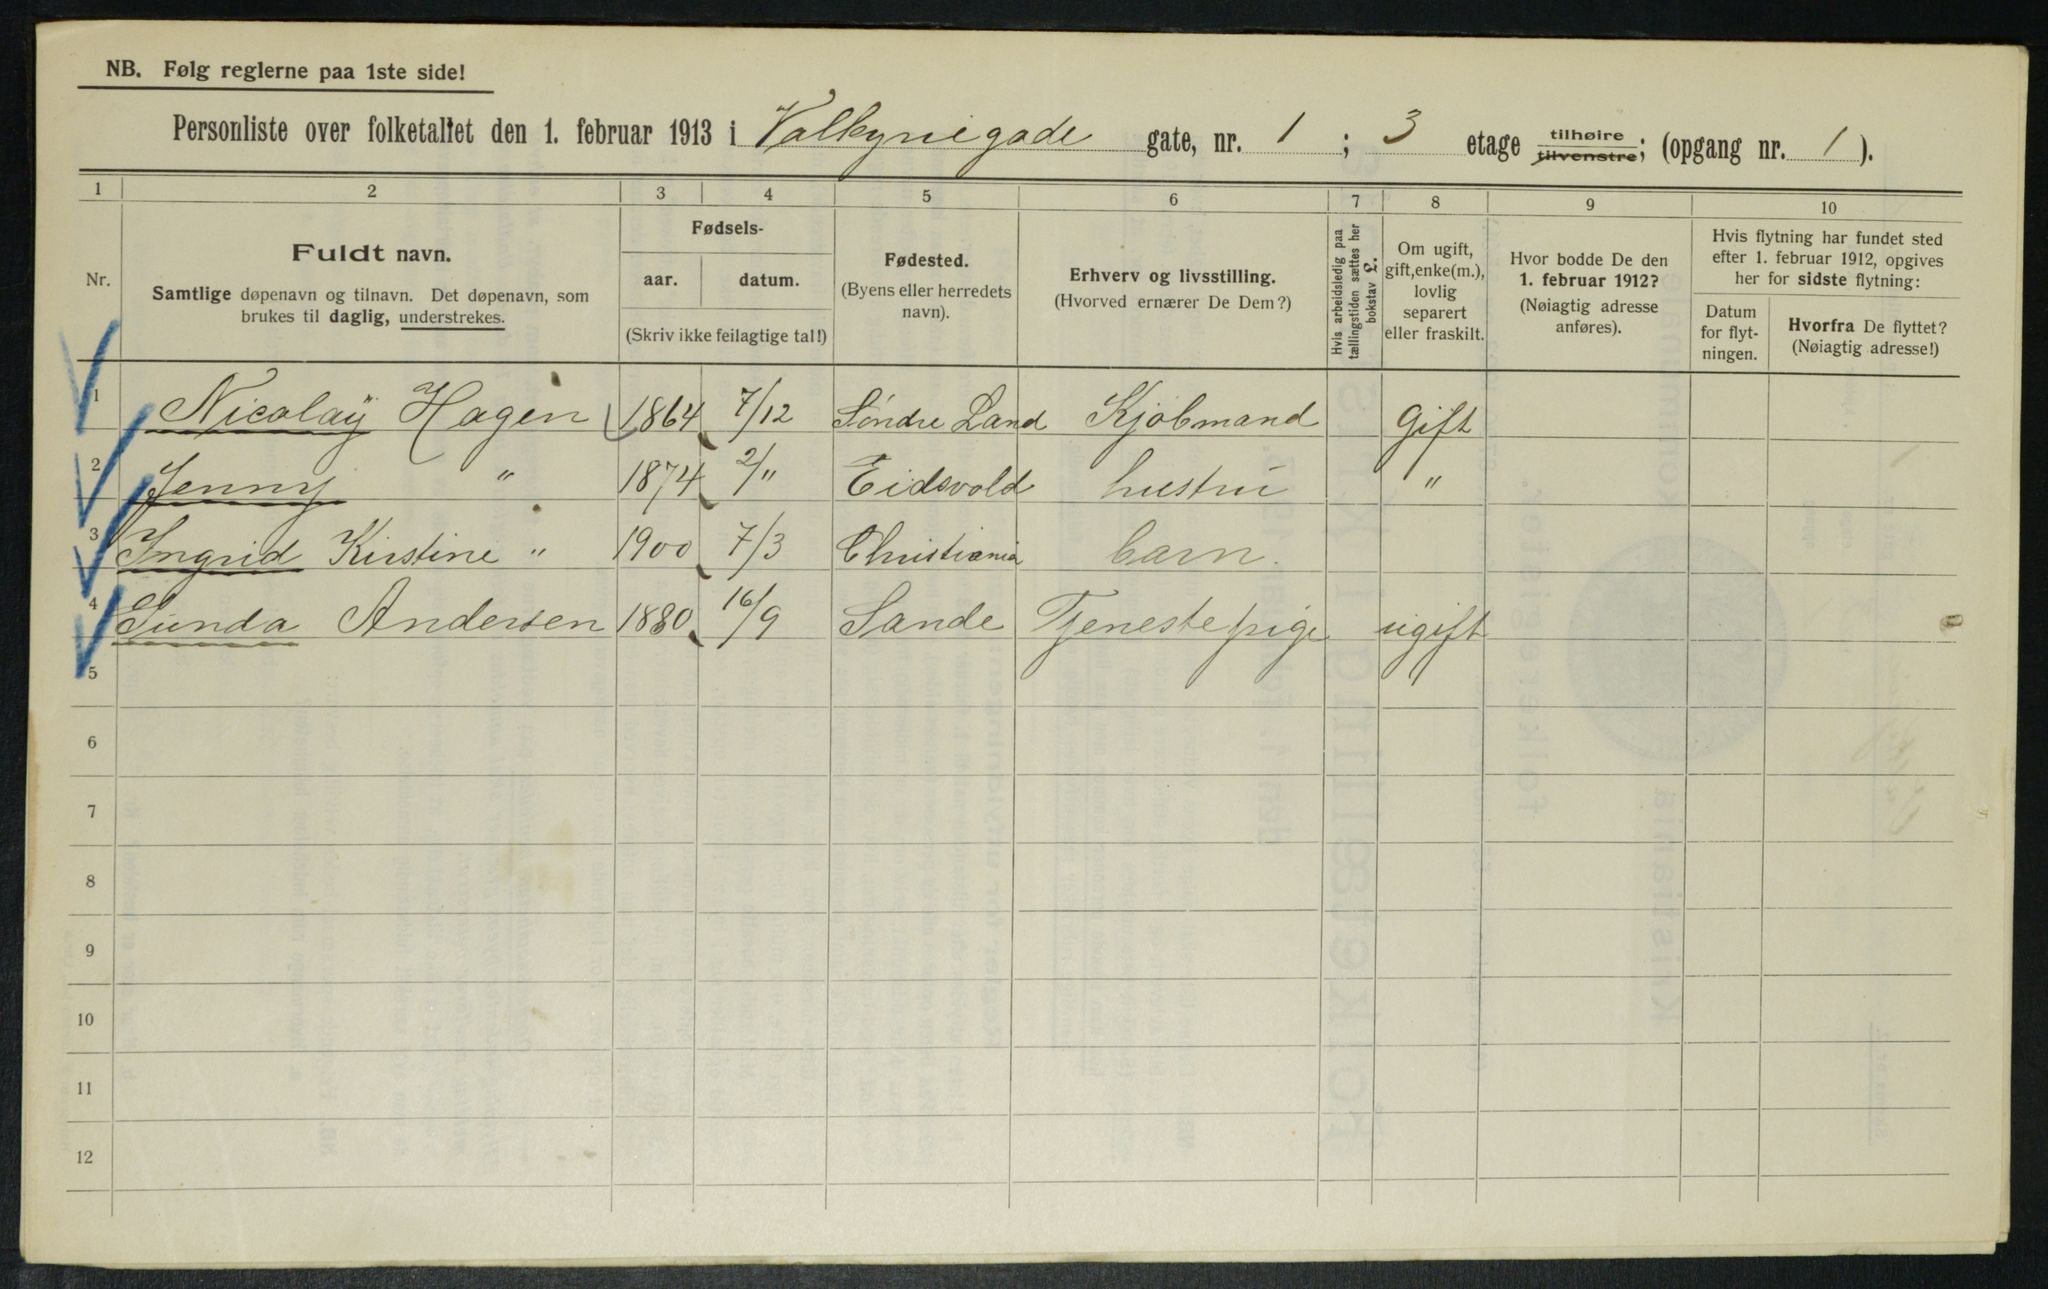 NB. Følg reglerne paa 1ste side!
Personliste over folketallet den 1. februar 1913 i Valkyriegade gate, nr. 1 ; 3 etage tilhøire tilvenstre; (opgang nr. 1 ).
1 2 3 4 5 6 7 8 9 10
Nr.
Fuldt navn.
Samtlige døpenavn og tilnavn. Det døpenavn, som
brukes til daglig, understrekes.
Fødsels-
aar. datum.
(Skriv ikke feilagtige tal!)
Fødested.
(Byens eller herredets
navn).
Erhverv og livsstilling.
(Hvorved ernærer De Dem?)
Hvis arbeidsledig paa
tællingstiden sættes her
bokstav L.
Om ugift,
gift, enke(m.),
lovlig
separert
eller fraskilt.
Hvor bodde De den
1. februar 1912?
(Nøiagtig adresse
anføres).
Hvis flytning har fundet sted
efter 1. februar 1912, opgives
her for sidste flytning:
Datum
for flyt-
ningen.
Hvorfra De flyttet?
(Nøiagtig adresse!)
1 Nicolaÿ Hagen 1864 7/12 Søndre Land Kjøbmand Gift
2 Jenny " 1874 2/11 Eidsvold hustru "
3 Ingrid Kirstine " 1900 7/3 Christiania barn.
4 Gunda Andersen 1880 16/9 Sande Tjenestepige ugift
5
6
7
8
9
10
11
12